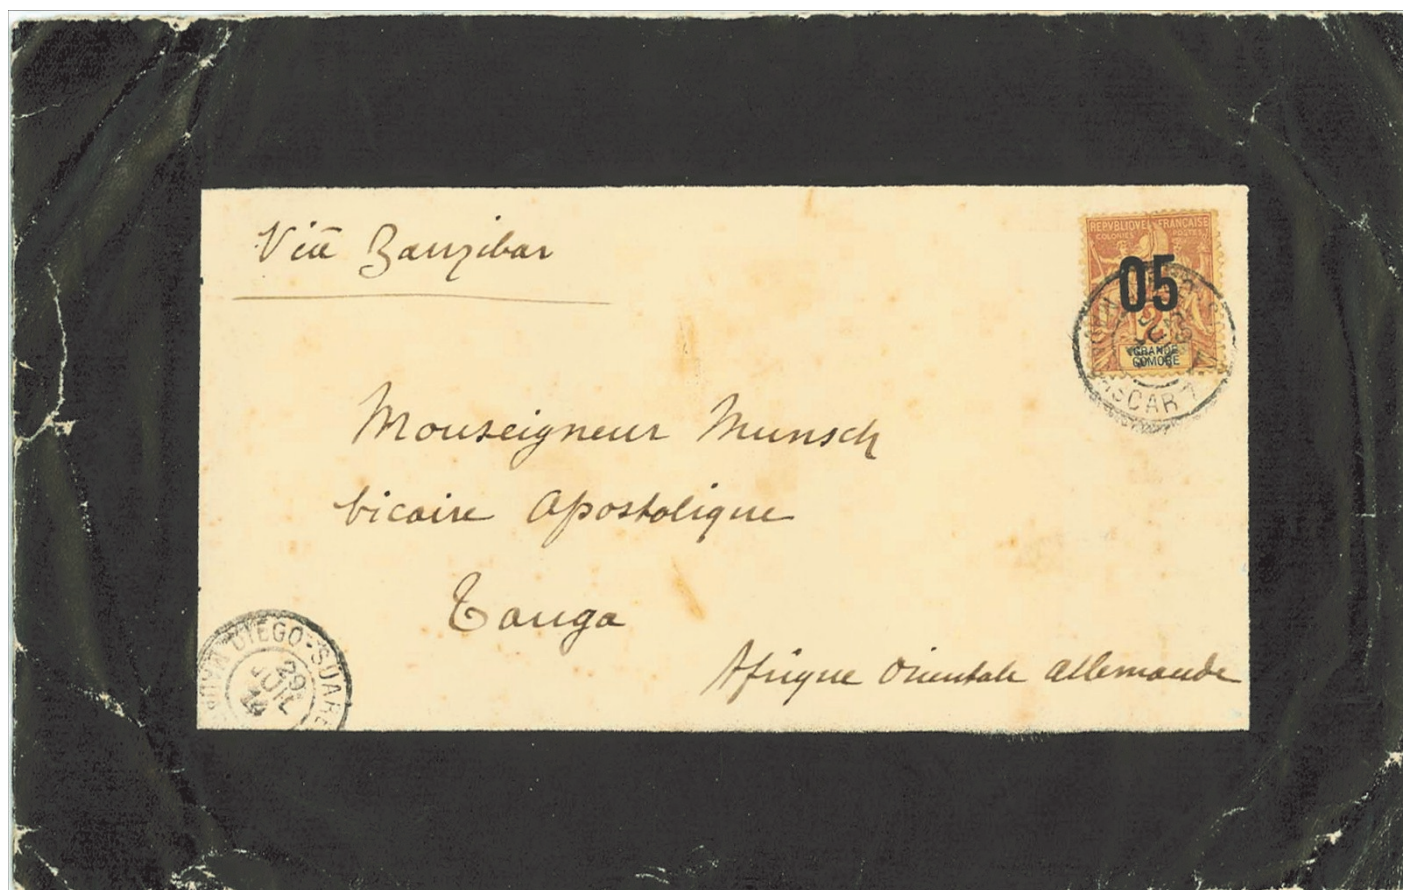 Viā Zanzibar
REPVBLIQVE FRANÇAISE
COLONIES POSTES
05
GRANDE
COMORE
SCAR 7
Monseigneur Munsch
Vicaire Apostolique
Tanga
Afrique Orientale Allemande
DIEGO-SUARE
29
JUIL
14